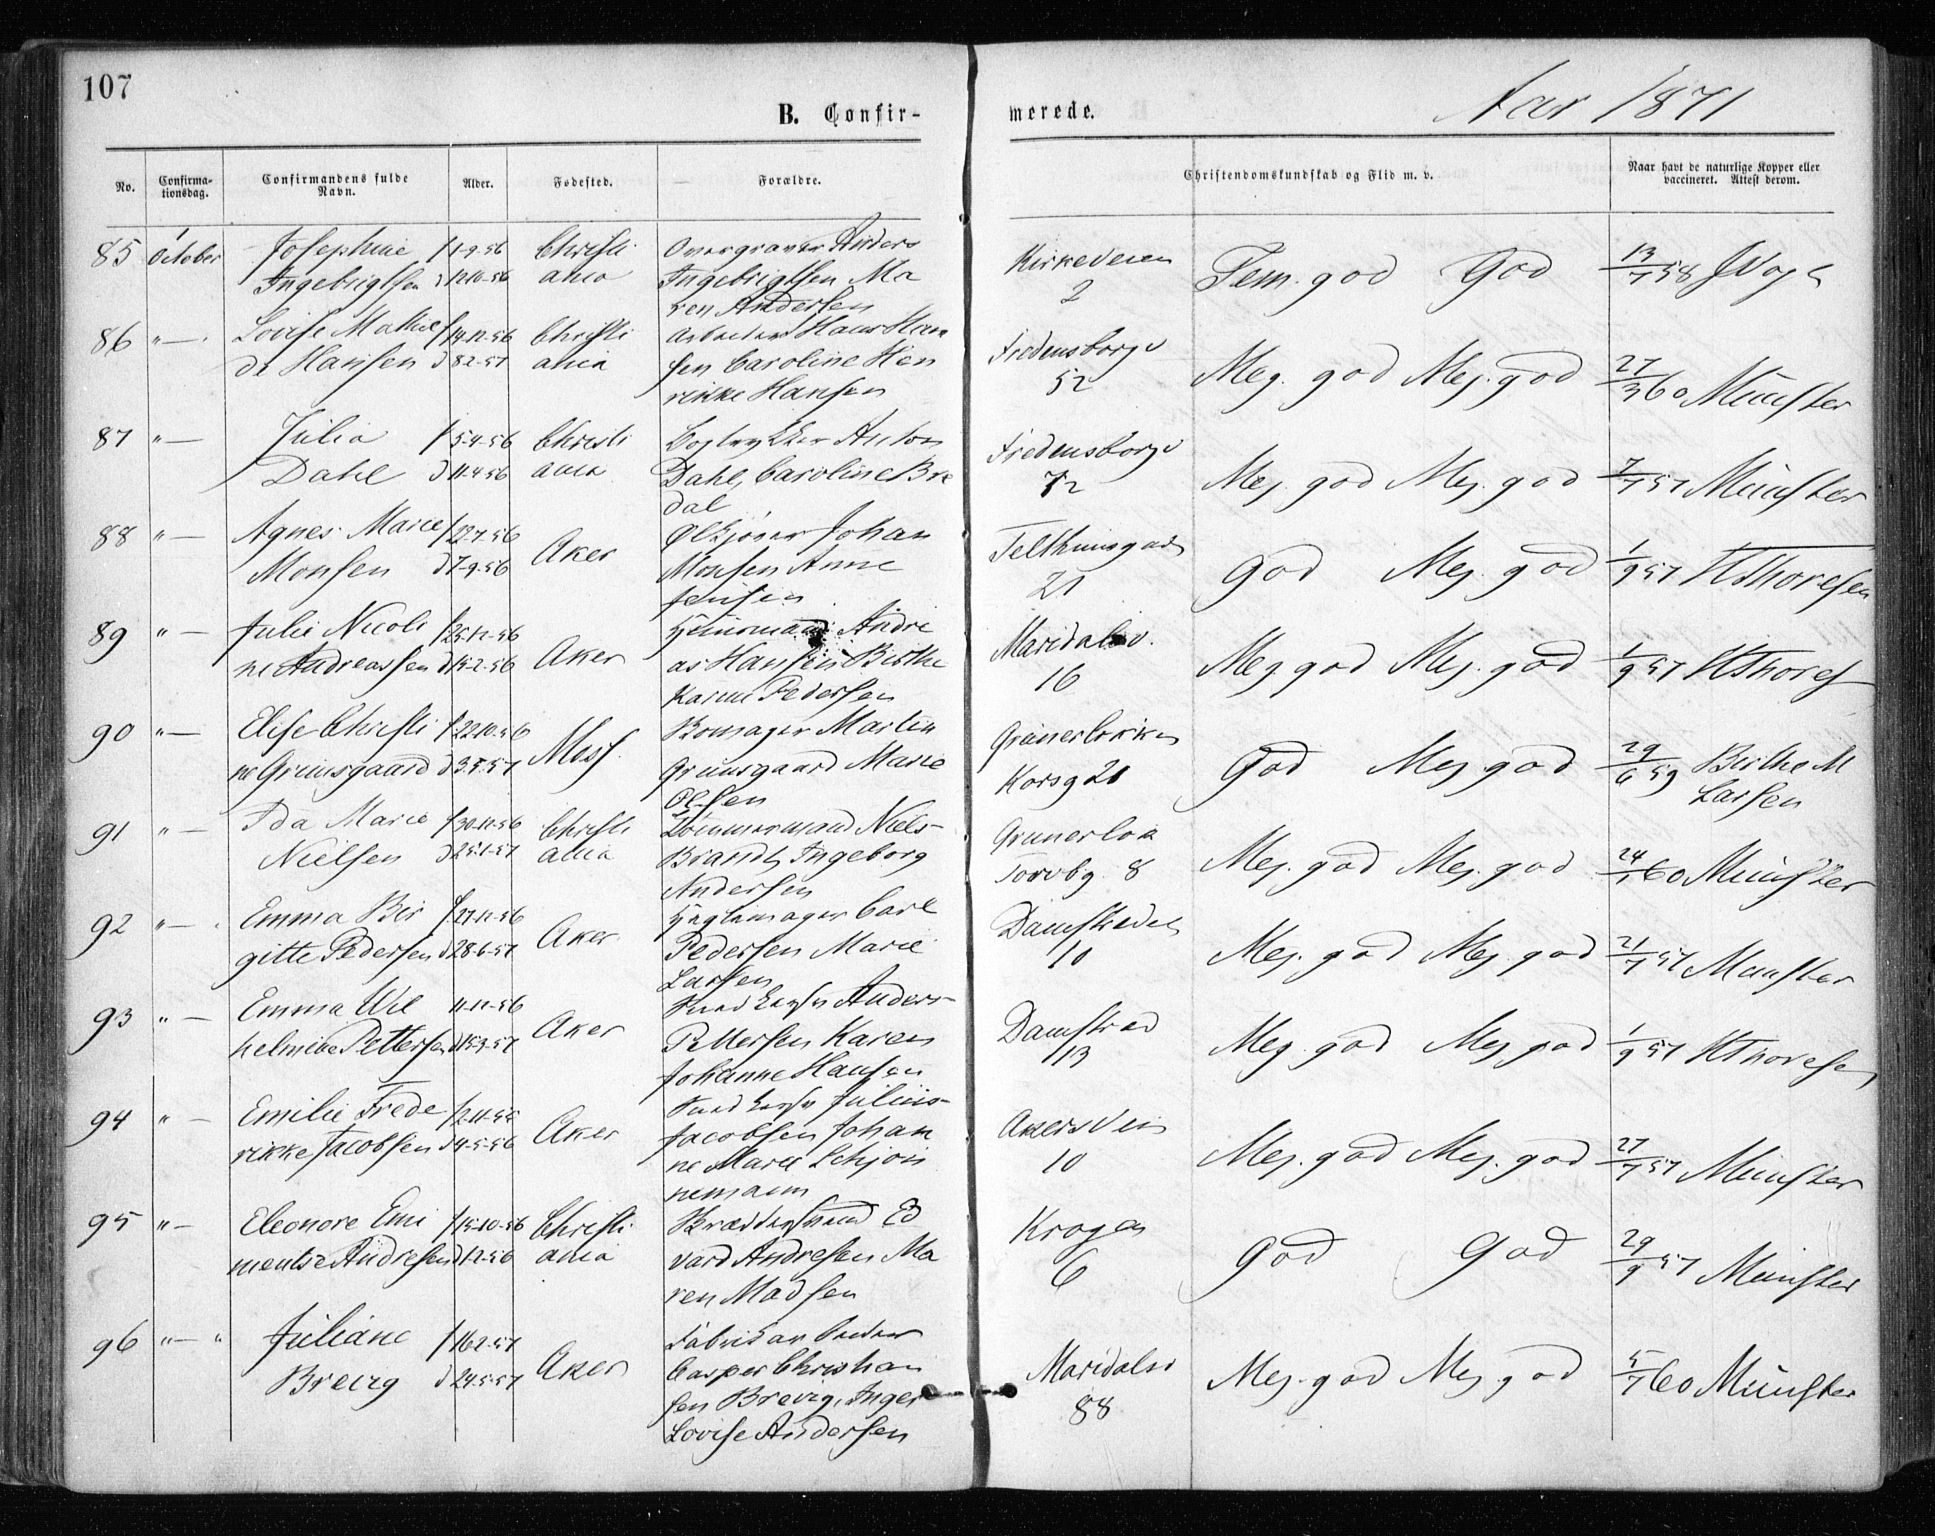 107
B. Confir-
merede.
Aar 1871
No.
Confirma-
tionsdag.
Confirmandens fulde
Navn.
Alder.
Fødested.
Forældre.
Christendomskundskab og Flid m. v.
Naar havt de naturlige Kopper eller
vaccineret. Attest derom.
85 1 October Josephine f 1-9-56 Christi Anders Kirkeveien Tem. god God 13/7 58 Vogt
Ingebrigtsen d 12-10-56 ania Ingebrigtsen Ma 2
ren Andersen
86 "— Lovise Mathil f 14-12-56 Christi Arbeider Hans Han Fredensborgv Meg. god Meg. god 27/3 60 Münster
de Hansen d 8-2-57 ania sen Caroline Hen 52
rikke Hansen
87 "— Julia f 5-4-56 Christi Bogtrykker Anton Fredensborgv Meg. god Meg. god 7/7 57 Münster
Dahl d 11-4-56 ania Dahl, Caroline Bre 72
dal
88 "— Agnes Marie f 22-7-56 Aker Ølkjører Johan Telthusgad 21 God Meg. god 1/9 57 H Thoresen
Monsen d 7-9-56 Monsen Anne
Jensen
89 "— Julie Nicoli f 25-12-56 Aker Andre Maridalsv. Meg. god Meg. god 1/9 57 H Thores
ne Andreassen d 15-2-56 as Hansen Birthe 16
Karine Pedersen
90 "— Elise Christi f 22-10-56 Moss. Martin Grünerløkken God Meg. god 29/6 59 Birthe M
ne Grimsgaard d 3-5-57 Grimsgaard Marie Korsg 21 Larsen
Olsen
91 "— Ida Marie f 30-11-56 Christi Tømmermand Niels Grünerløk Meg. god Meg. god 24/1 60 Münster
Nielsen d 25-1-57 ania Brandt, Ingeborg Torvbg. 8
Andersen
92 "— Emma Bir f 27-11-56 Aker Carl Damstredet Meg. god Meg. god 21/7 57 Munster
gitte Pedersen d 28-6-57 Pedersen Marie 10
Larsen
93 "— Emma Wil 11-11-56 Aker Anders Damstred Meg. god Meg god 1/9 57 H Thoresen
helmine Pettersen d 15-3-57 Pettersen Karen 13
Johanne Hansen
94 "— Emilie Frede f 2-11-55 Aker Julius Akersvei Meg. god Meg. god 27/7 57 Münster
rikke Jacobsen d 4-5-56 Jacobsen Johan 10
ne Marie Schjøn
nemann
95 "— Eleonore Emi f 15-10-56 Christi Ed Krogen God God 29/9 57 Münster
mentze Andresen d 1-12-56 ania vard Andresen Ma 6
ren Madsen
96 "— " Juliane f 16-2-57 Aker Fabrikarbeider Maridalsv Meg. god Meg. god 5/7 60 Münster
Brevig d 24-5-57 Casper Christian 88
sen Brevig, Inger
Lovise Andersen